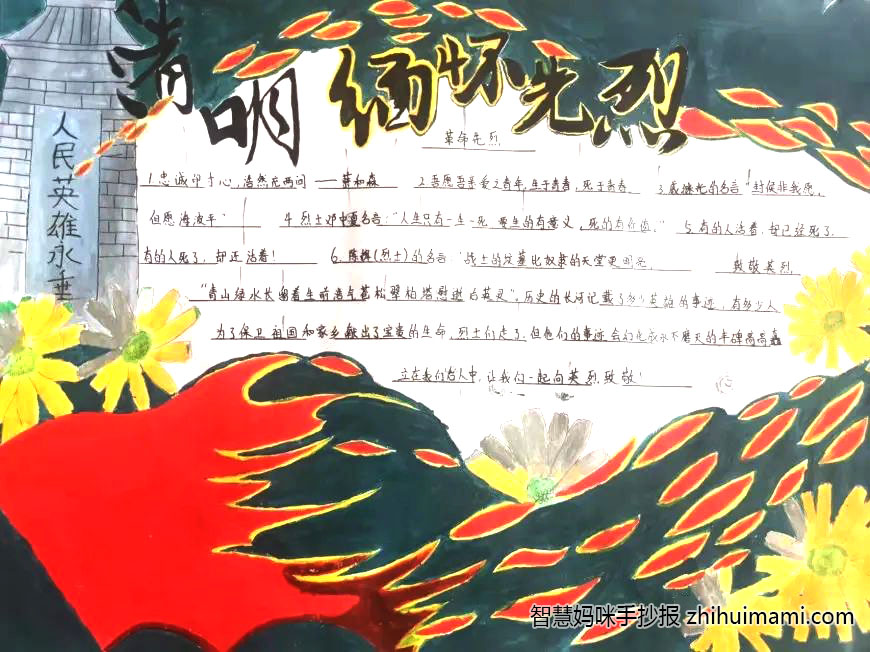 清明 缅怀先烈
人民英雄永垂
革命先烈
1.忠诚印寸心，浩然充两间 ——蔡和森 2.吾愿吾亲爱之青年，生于青春，死于青春 3.戚继光的名言"封侯非我愿，
但愿海波平" 4.烈士邓中夏名言："人生只有一生一死，要生的有意义，死的有价值。" 5.有的人活着，却已经死了，
有的人死了，却还活着！ 6.陈辉(烈士)的名言："战士的坟墓比奴隶的天堂更明亮 致敬英烈
"青山绿水长留生前浩气苍松翠柏堪慰逝后英灵"，历史的长河记载了多少英雄的事迹，有多少人
为了保卫祖国和家乡献出了宝贵的生命，烈士们走了，但他们的事迹会幻化成永不磨灭的丰碑高高矗
立在我们后人中，让我们一起向英烈致敬！
智慧妈咪手抄报 zhihuimami.com